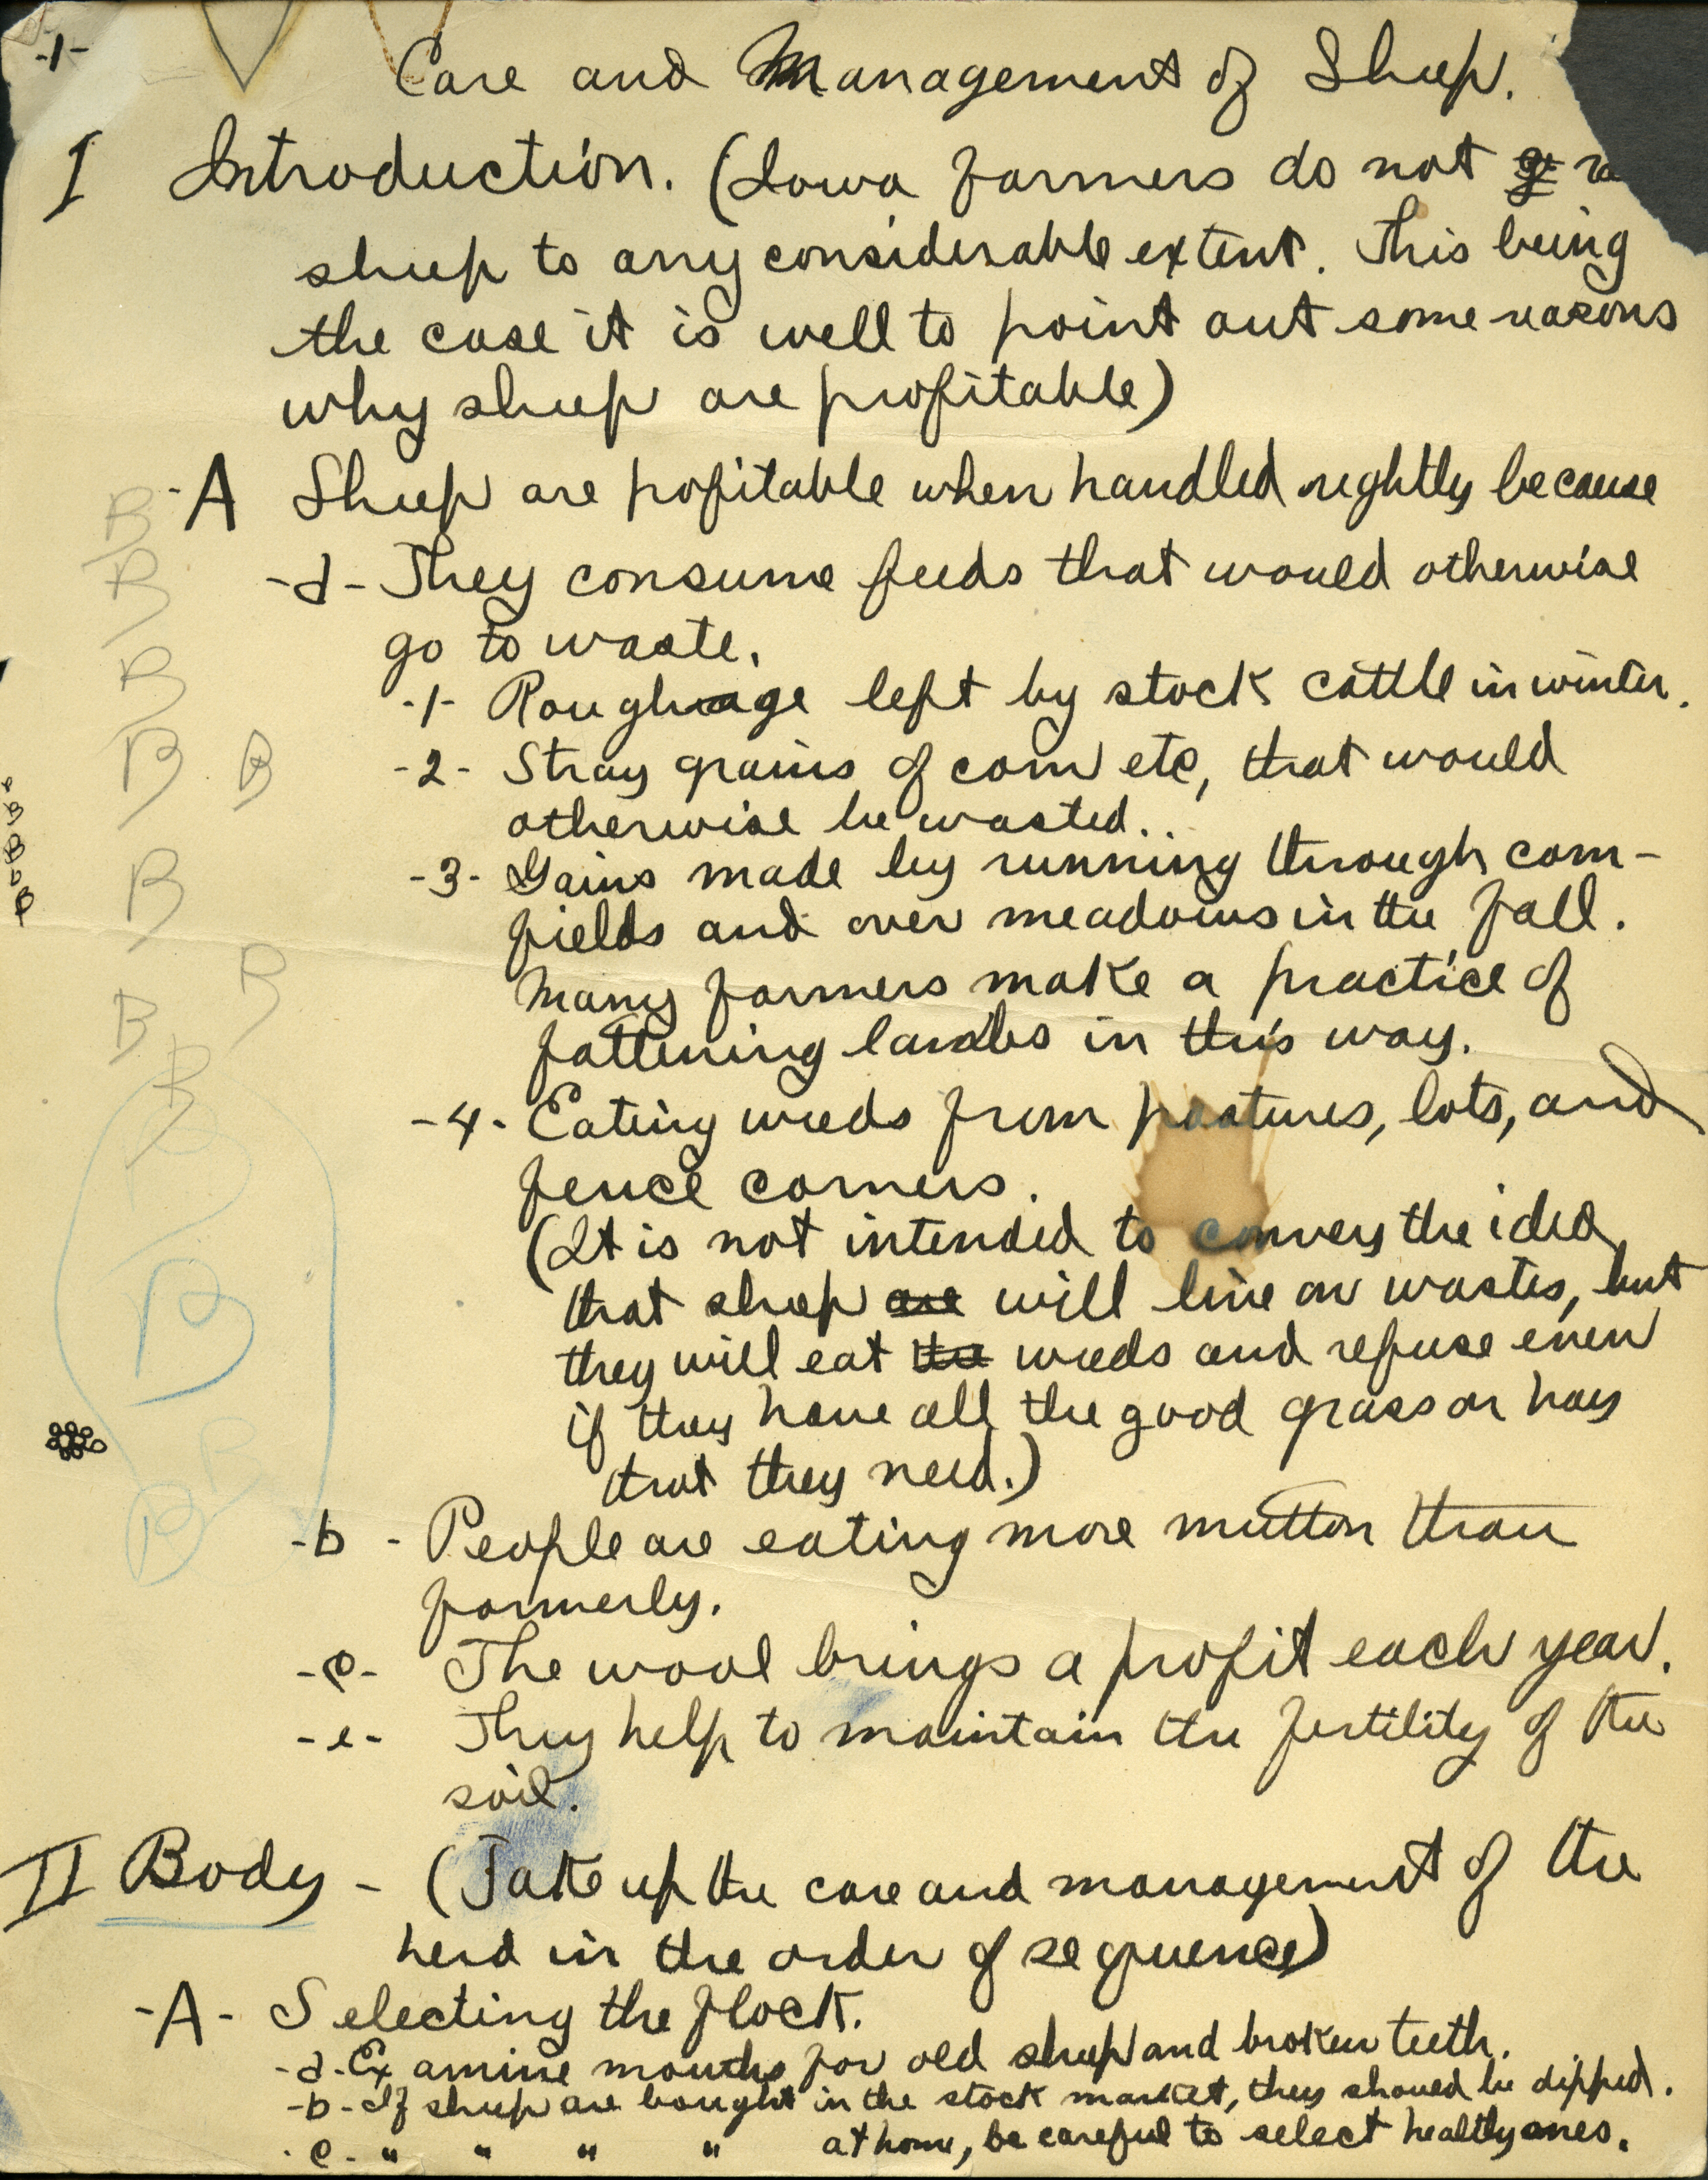 -1-
Care and Management of Sheep.
I Introduction. (Iowa farmers do not
sheep to any considerable extent. This being
the case it is well to point out some reasons
why sheep are profitable)
-A Sheep are profitable when handled rightly because
-a- They consume feeds that would otherwise
go to waste.
-1- Roughage left by stock cattle in winter.
-2- Stray grains of corn etc, that would
otherwise be wasted..
-3- Gains made by running through corn-
fields and over meadows in the fall.
Many farmers make a practice of
fattening lambs in this way.
-4- Eating weeds from pastures, lots, and
fence corners.
(It is not intended to convey the idea
that sheep are will live on wastes, but
they will eat the weeds and refuse even
if they have all the good grass or hay
that they need.)
-b- People are eating more mutton than
formerly.
-c- The wool brings a profit each year.
-e- They help to maintain the fertility of the
soil.
II Body - (Take up the care and management of the
herd in the order of sequence)
-A- Selecting the flock.
-a- Examine mouths for old sheep and broken teeth.
-b- If sheep are bought in the stock market, they should be dipped.
-c- " " " " at home, be careful to select healthy ones.
B
B
B
B B
B
B
B
B
B
B
B
B
B
B
B